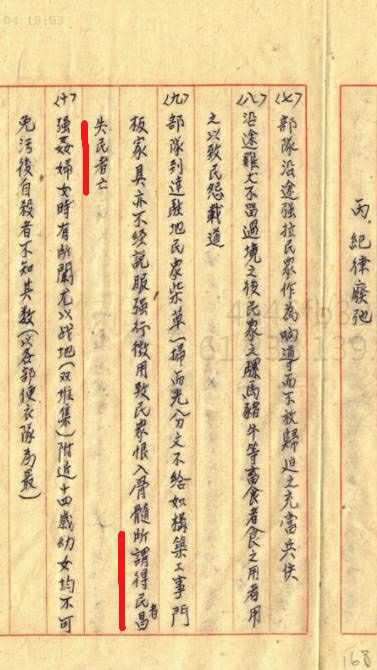 丙、紀律廢弛
(七)部隊沿途強拉民眾作為嚮導而不放歸迫之充當兵伕
(八)沿途雞犬不留過境之後民家之騾馬豬牛等畜食者食之用者用
之以致民怨載道
(九)部隊到達駐地民家柴草一掃而光分文不給如構築工事門
板家具亦不經說服強行徵用致民眾恨入骨髓所謂得民者昌
失民者亡
(十)強姦婦女時有所聞尤以战地(双堆集)附近十四歲幼女均不可
免污後自殺者不知其数(以各部便衣隊為最)
168